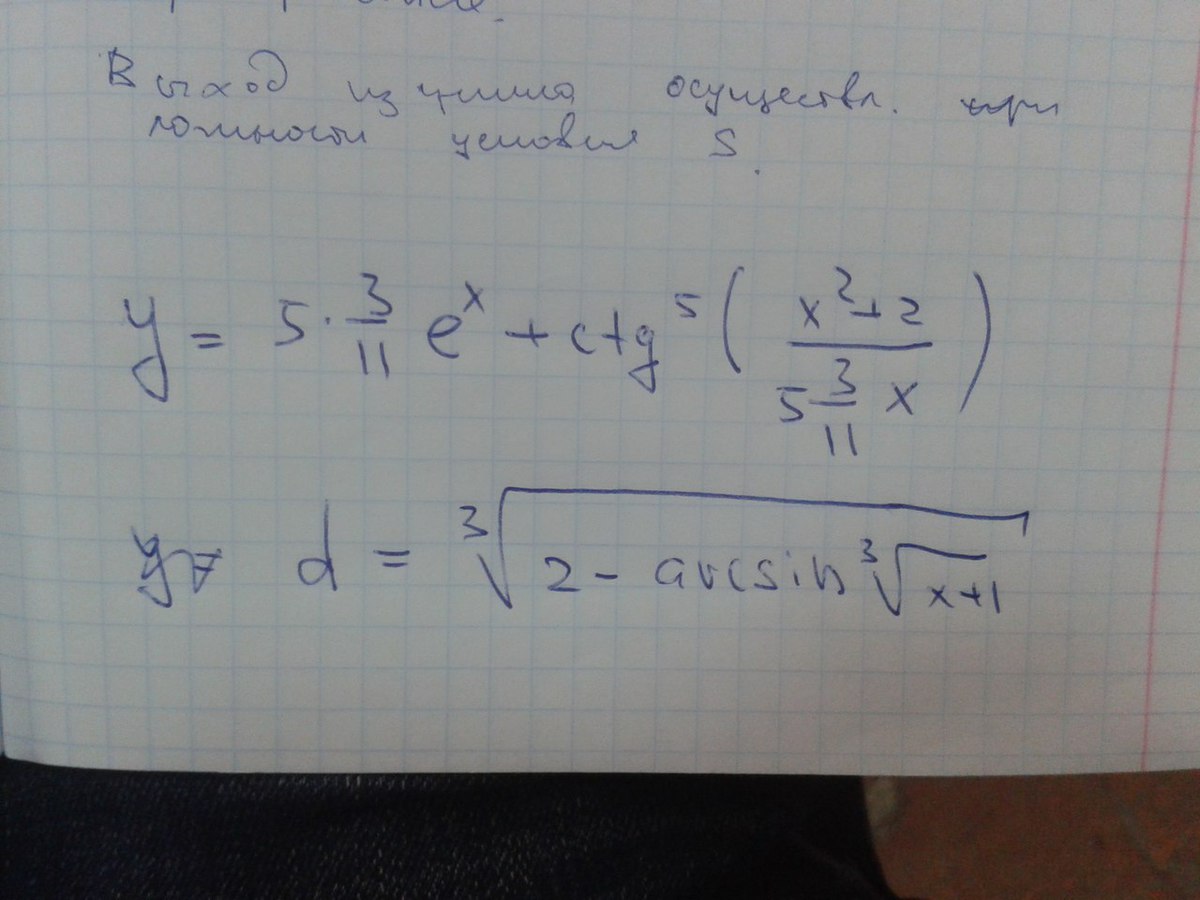 Выход из цикла осуществл. при
ложности условия S.
y = 5 · 3/11 e^x + ctg^5 ( (x^2+2) / (5 3/11 x) )
d = ∛(2 - arcsin ∛(x+1))